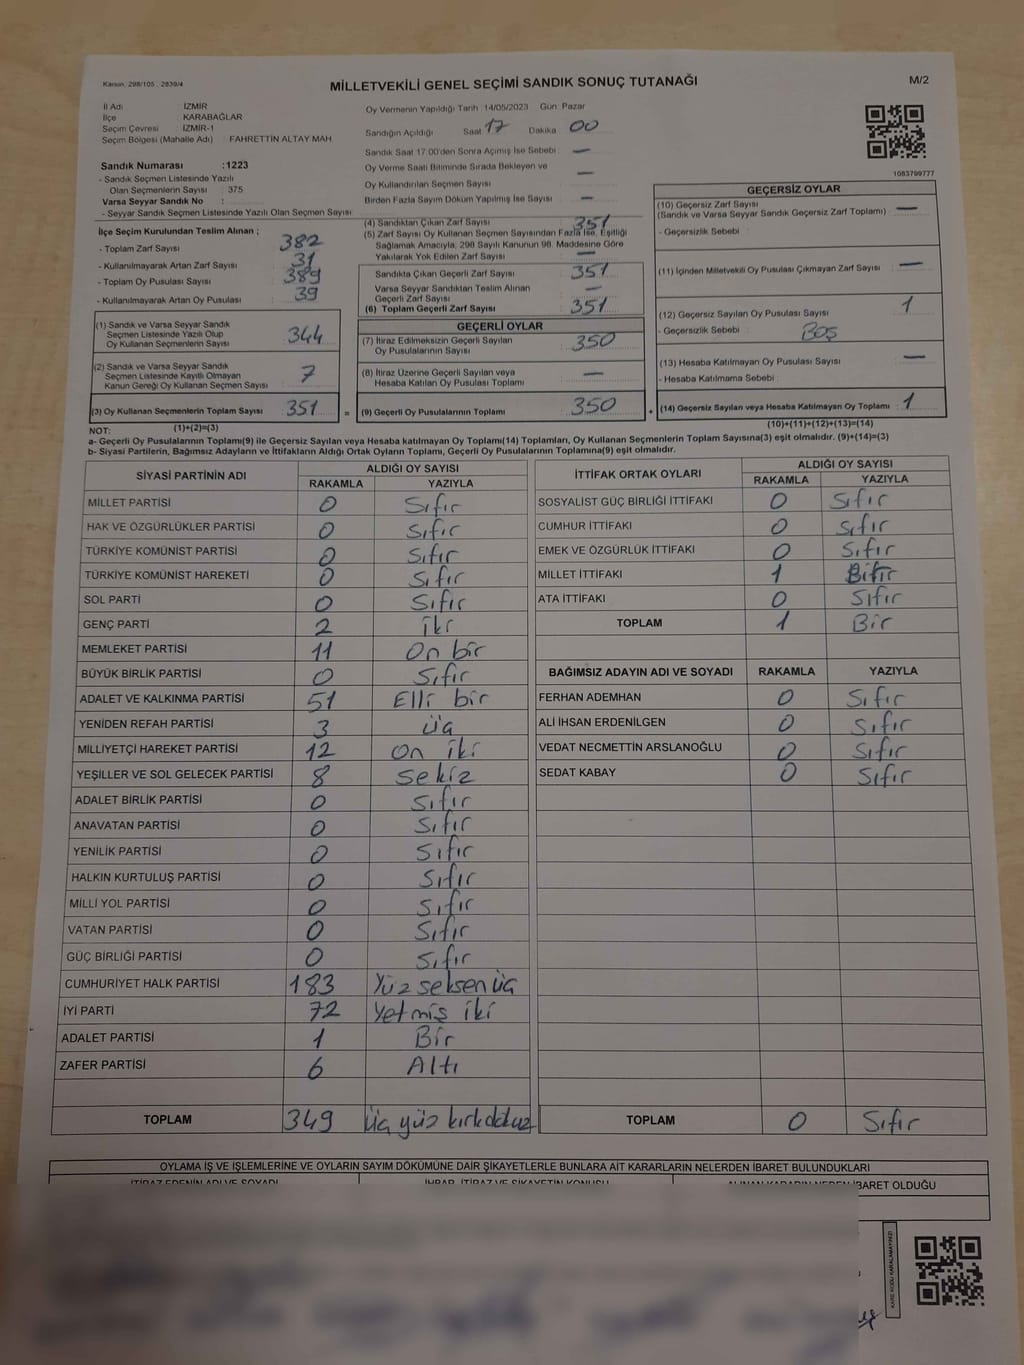 Kanun: 298/105 , 2839/4
MİLLETVEKİLİ GENEL SEÇİMİ SANDIK SONUÇ TUTANAĞI
M/2
İl Adı İZMİR
İlçe KARABAĞLAR
Seçim Çevresi İZMİR-1
Seçim Bölgesi (Mahalle Adı) FAHRETTİN ALTAY MAH.
Sandık Numarası :1223
- Sandık Seçmen Listesinde Yazılı
Olan Seçmenlerin Sayısı : 375
Varsa Seyyar Sandık No :
- Seyyar Sandık Seçmen Listesinde Yazılı Olan Seçmen Sayısı:
Oy Vermenin Yapıldığı Tarih 14/05/2023 Gün Pazar
Sandığın Açıldığı Saat 17 Dakika 00
Sandık Saat 17.00'den Sonra Açımış İse Sebebi : —
Oy Verme Saati Bitiminde Sırada Bekleyen ve
Oy Kullandırılan Seçmen Sayısı : —
Birden Fazla Sayım Döküm Yapılmış İse Sayısı : —
1083799777
İlçe Seçim Kurulundan Teslim Alınan ;
- Toplam Zarf Sayısı 382
- Kullanılmayarak Artan Zarf Sayısı 31
- Toplam Oy Pusulası Sayısı 389
- Kullanılmayarak Artan Oy Pusulası 39
(1) Sandık ve Varsa Seyyar Sandık
Seçmen Listesinde Yazılı Olup
Oy Kullanan Seçmenlerin Sayısı 344
(2) Sandık ve Varsa Seyyar Sandık
Seçmen Listesinde Kayıtlı Olmayan
Kanun Gereği Oy Kullanan Seçmen Sayısı 7
(3) Oy Kullanan Seçmenlerin Toplam Sayısı 351 =
(4) Sandıktan Çıkan Zarf Sayısı 351
(5) Zarf Sayısı Oy Kullanan Seçmen Sayısından Fazla İse, Eşitliği
Sağlamak Amacıyla, 298 Sayılı Kanunun 98. Maddesine Göre
Yakılarak Yok Edilen Zarf Sayısı : —
Sandıkta Çıkan Geçerli Zarf Sayısı : 351
Varsa Seyyar Sandıktan Teslim Alınan
Geçerli Zarf Sayısı —
(6) Toplam Geçerli Zarf Sayısı : 351
GEÇERLİ OYLAR
(7) İtiraz Edilmeksizin Geçerli Sayılan
Oy Pusulalarının Sayısı : 350
(8) İtiraz Üzerine Geçerli Sayılan veya
Hesaba Katılan Oy Pusulası Toplamı : —
(9) Geçerli Oy Pusulalarının Toplamı : 350 +
GEÇERSİZ OYLAR
(10) Geçersiz Zarf Sayısı
(Sandık ve Varsa Seyyar Sandık Geçersiz Zarf Toplamı) —
- Geçersizlik Sebebi :
(11) İçinden Milletvekili Oy Pusulası Çıkmayan Zarf Sayısı —
(12) Geçersiz Sayılan Oy Pusulası Sayısı 1
- Geçersizlik Sebebi : Boş
(13) Hesaba Katılmayan Oy Pusulası Sayısı —
- Hesaba Katılmama Sebebi :
(14) Geçersiz Sayılan veya Hesaba Katılmayan Oy Toplamı : 1
NOT: (1)+(2)=(3) (10)+(11)+(12)+(13)=(14)
a- Geçerli Oy Pusulalarının Toplam(9) ile Geçersiz Sayılan veya Hesaba katılmayan Oy Toplamı(14) Toplamları, Oy Kullanan Seçmenlerin Toplam Sayısına(3) eşit olmalıdır. (9)+(14)=(3)
b- Siyasi Partilerin, Bağımsız Adayların ve İttifakların Aldığı Ortak Oyların Toplamı, Geçerli Oy Pusulalarının Toplamına(9) eşit olmalıdır.
SİYASİ PARTİNİN ADI ALDIĞI OY SAYISI
RAKAMLA YAZIYLA
MİLLET PARTİSİ 0 Sıfır
HAK VE ÖZGÜRLÜKLER PARTİSİ 0 Sıfır
TÜRKİYE KOMÜNİST PARTİSİ 0 Sıfır
TÜRKİYE KOMÜNİST HAREKETİ 0 Sıfır
SOL PARTİ 0 Sıfır
GENÇ PARTİ 2 iki
MEMLEKET PARTİSİ 11 On bir
BÜYÜK BİRLİK PARTİSİ 0 Sıfır
ADALET VE KALKINMA PARTİSİ 51 Elli bir
YENİDEN REFAH PARTİSİ 3 üç
MİLLİYETÇİ HAREKET PARTİSİ 12 on iki
YEŞİLLER VE SOL GELECEK PARTİSİ 8 sekiz
ADALET BİRLİK PARTİSİ 0 Sıfır
ANAVATAN PARTİSİ 0 Sıfır
YENİLİK PARTİSİ 0 Sıfır
HALKIN KURTULUŞ PARTİSİ 0 Sıfır
MİLLİ YOL PARTİSİ 0 Sıfır
VATAN PARTİSİ 0 Sıfır
GÜÇ BİRLİĞİ PARTİSİ 0 Sıfır
CUMHURİYET HALK PARTİSİ 183 Yüz seksen üç
İYİ PARTİ 72 Yetmiş iki
ADALET PARTİSİ 1 Bir
ZAFER PARTİSİ 6 Altı
TOPLAM 349 üç yüz kırkdokuz
İTTİFAK ORTAK OYLARI ALDIĞI OY SAYISI
RAKAMLA YAZIYLA
SOSYALİST GÜÇ BİRLİĞİ İTTİFAKI 0 Sıfır
CUMHUR İTTİFAKI 0 Sıfır
EMEK VE ÖZGÜRLÜK İTTİFAKI 0 Sıfır
MİLLET İTTİFAKI 1
ATA İTTİFAKI 0 Sıfır
TOPLAM 1 Bir
BAĞIMSIZ ADAYIN ADI VE SOYADI RAKAMLA YAZIYLA
FERHAN ADEMHAN 0 Sıfır
ALİ İHSAN ERDENİLGEN 0 Sıfır
VEDAT NECMETTİN ARSLANOĞLU 0 Sıfır
SEDAT KABAY 0 Sıfır
TOPLAM 0 Sıfır
OYLAMA İŞ VE İŞLEMLERİNE VE OYLARIN SAYIM DÖKÜMÜNE DAİR ŞİKAYETLERLE BUNLARA AİT KARARLARIN NELERDEN İBARET BULUNDUKLARI
İTİRAZ EDENİN ADI VE SOYADI İHBAR, İTİRAZ VE ŞİKAYETİN KONUSU ALINAN KARARIN NEDEN İBARET OLDUĞU
KARE KODU KARALAMAYINIZ!